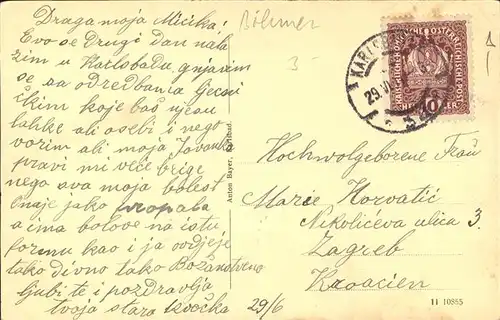 Draga moja Micika!
Evo se drugi dan nala
zim u Karlsbadu, gnjavim
se sa odredbama lječni
čkim koje baš nijesu
lahke ali o sebi i nego
vorim ali moja Jovanka
pravi mi veće brige
nego sva moja bolest
ona je jako propala
a ima bolove na istu
formu kao i ja ovdje je
tako divno tako Božanstveno
ljubi te i pozdravlja
tvoja stara
29/6
Böhmen
3
KARLSBAD
29. VI
10
Anton Bayer, Karlsbad.
Hochwolgeborene Frau
Marie Horvatić
Nikolićeva ulica 3.
Zagreb
Kroacien
11 10855